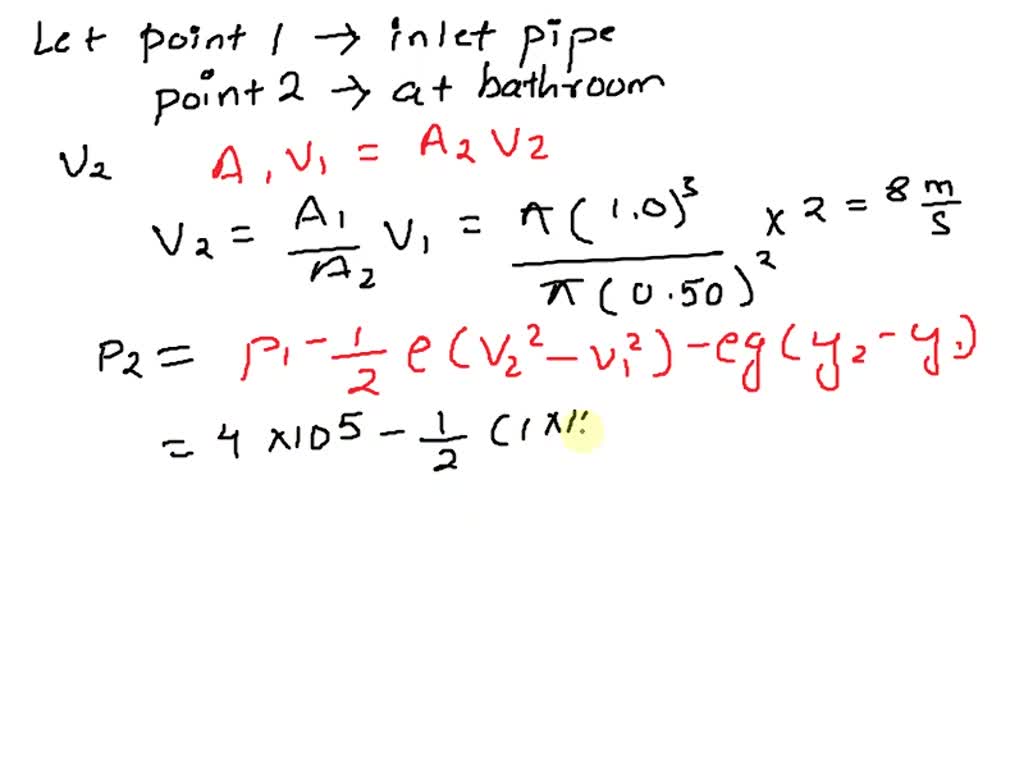 Let point 1 → inlet pipe
point 2 → at bathroom
V₂ A₁V₁ = A₂V₂
V₂ = A₁/A₂ V₁ = π(1.0)³/π(0.50)² × 2 = 8 m/s
P₂ = P₁ - 1/2 ρ(V₂² - V₁²) - ρg(y₂ - y₁)
= 4 × 10⁵ - 1/2 (1 × 1